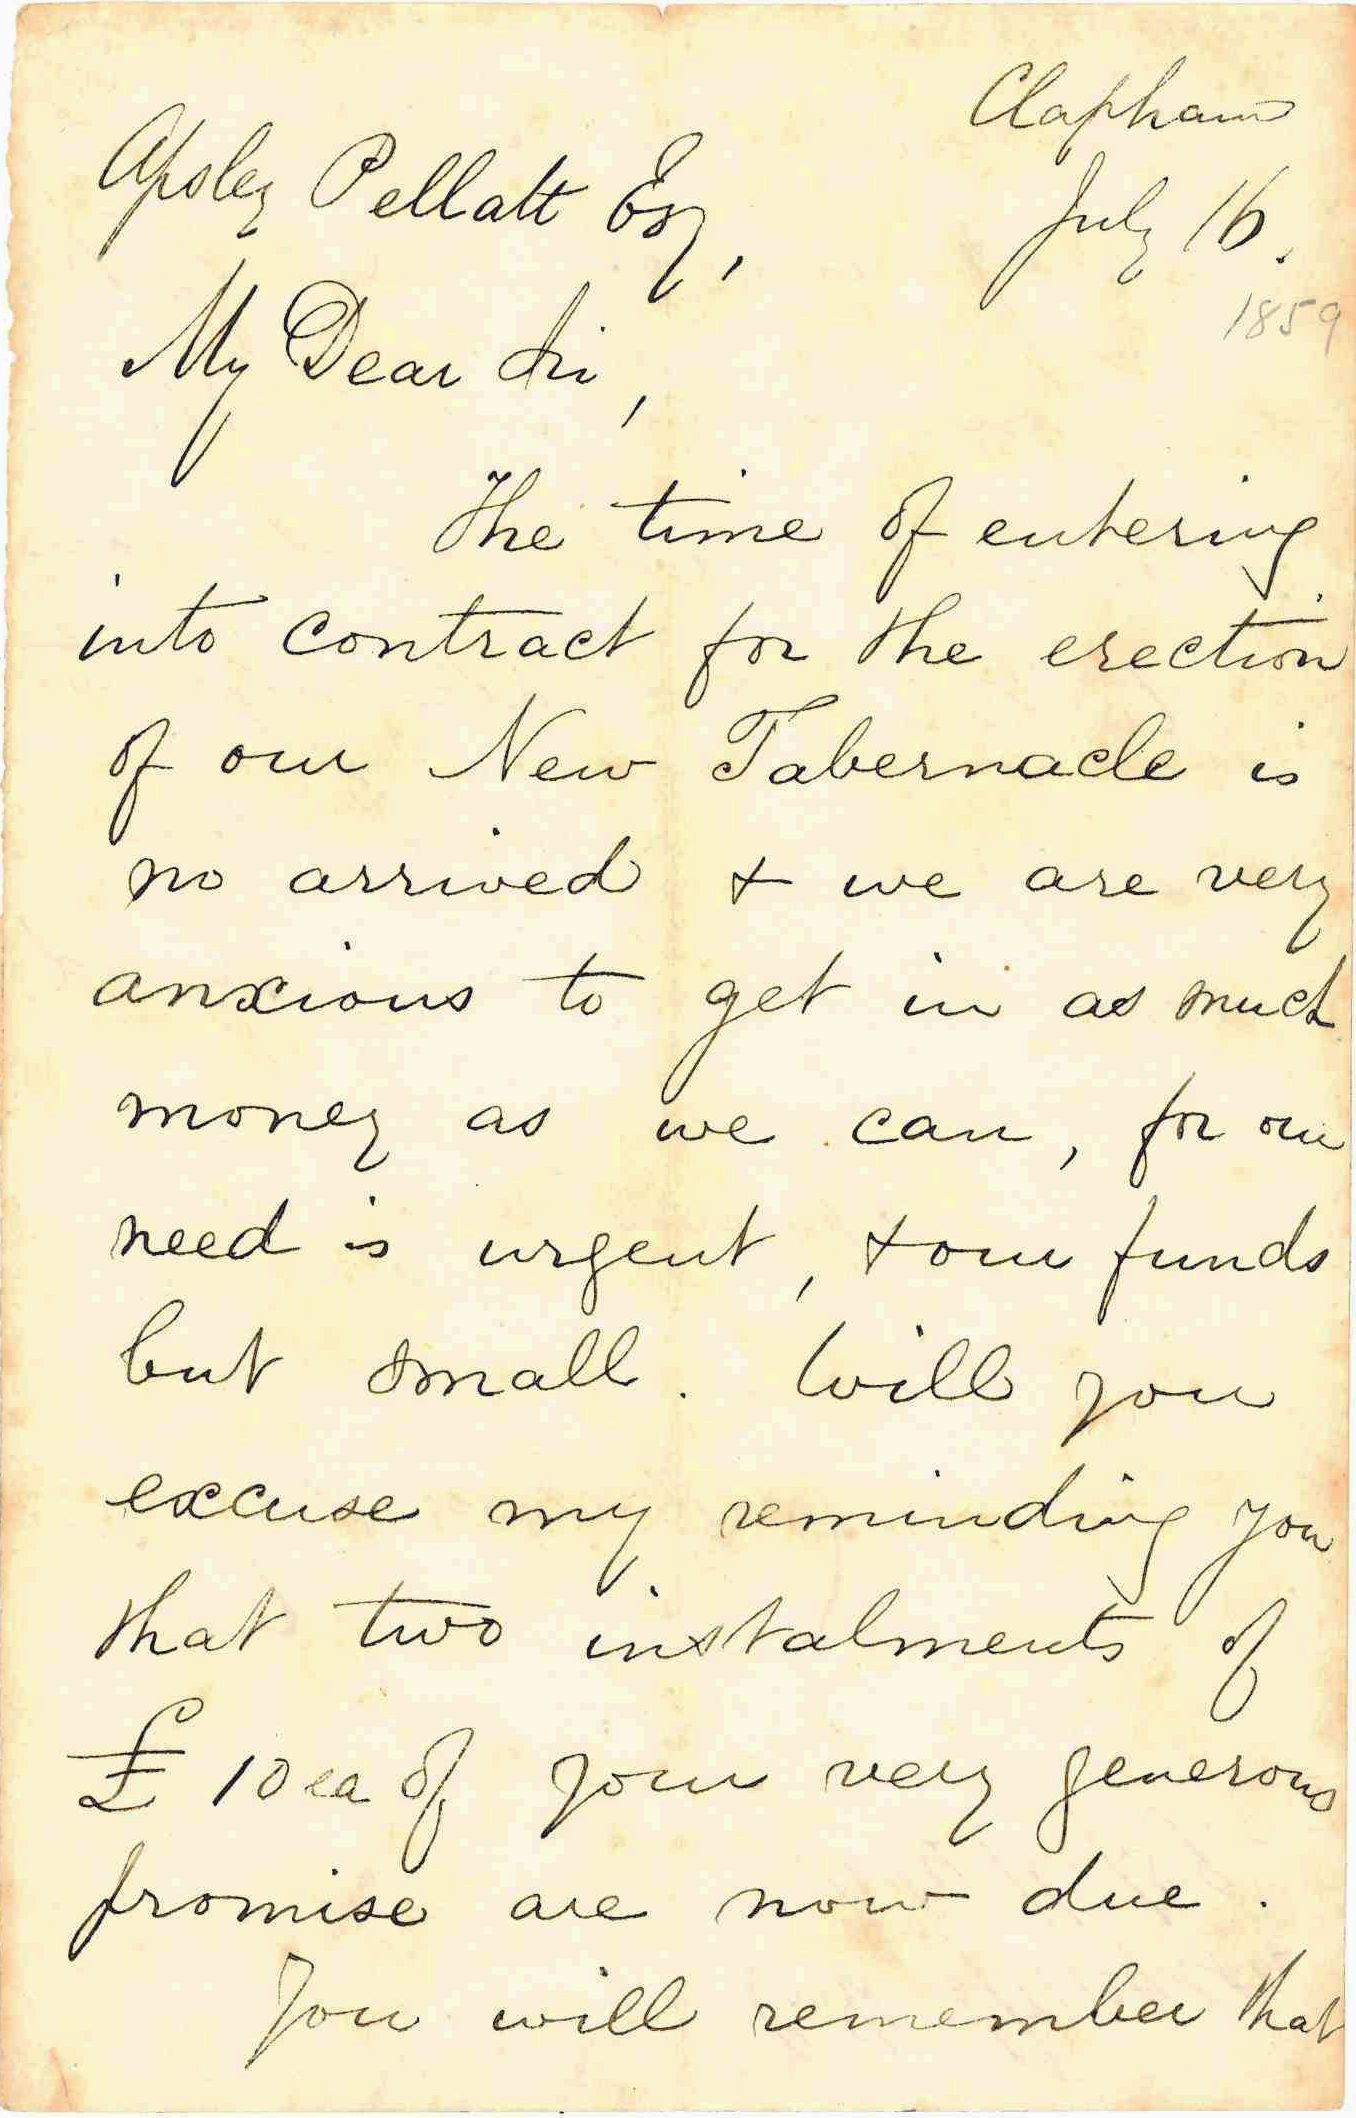 Clapham
July 16.
1859
Apsley Pellatt Esq,
My Dear Sir,
The time of entering
into contract for the erection
of our New Tabernacle is
no arrived & we are very
anxious to get in as much
money as we can, for our
need is urgent, & our funds
but small. Will you
excuse my reminding you
that two instalments of
£ 10 ea of your very generous
promise are now due.
You will remember that